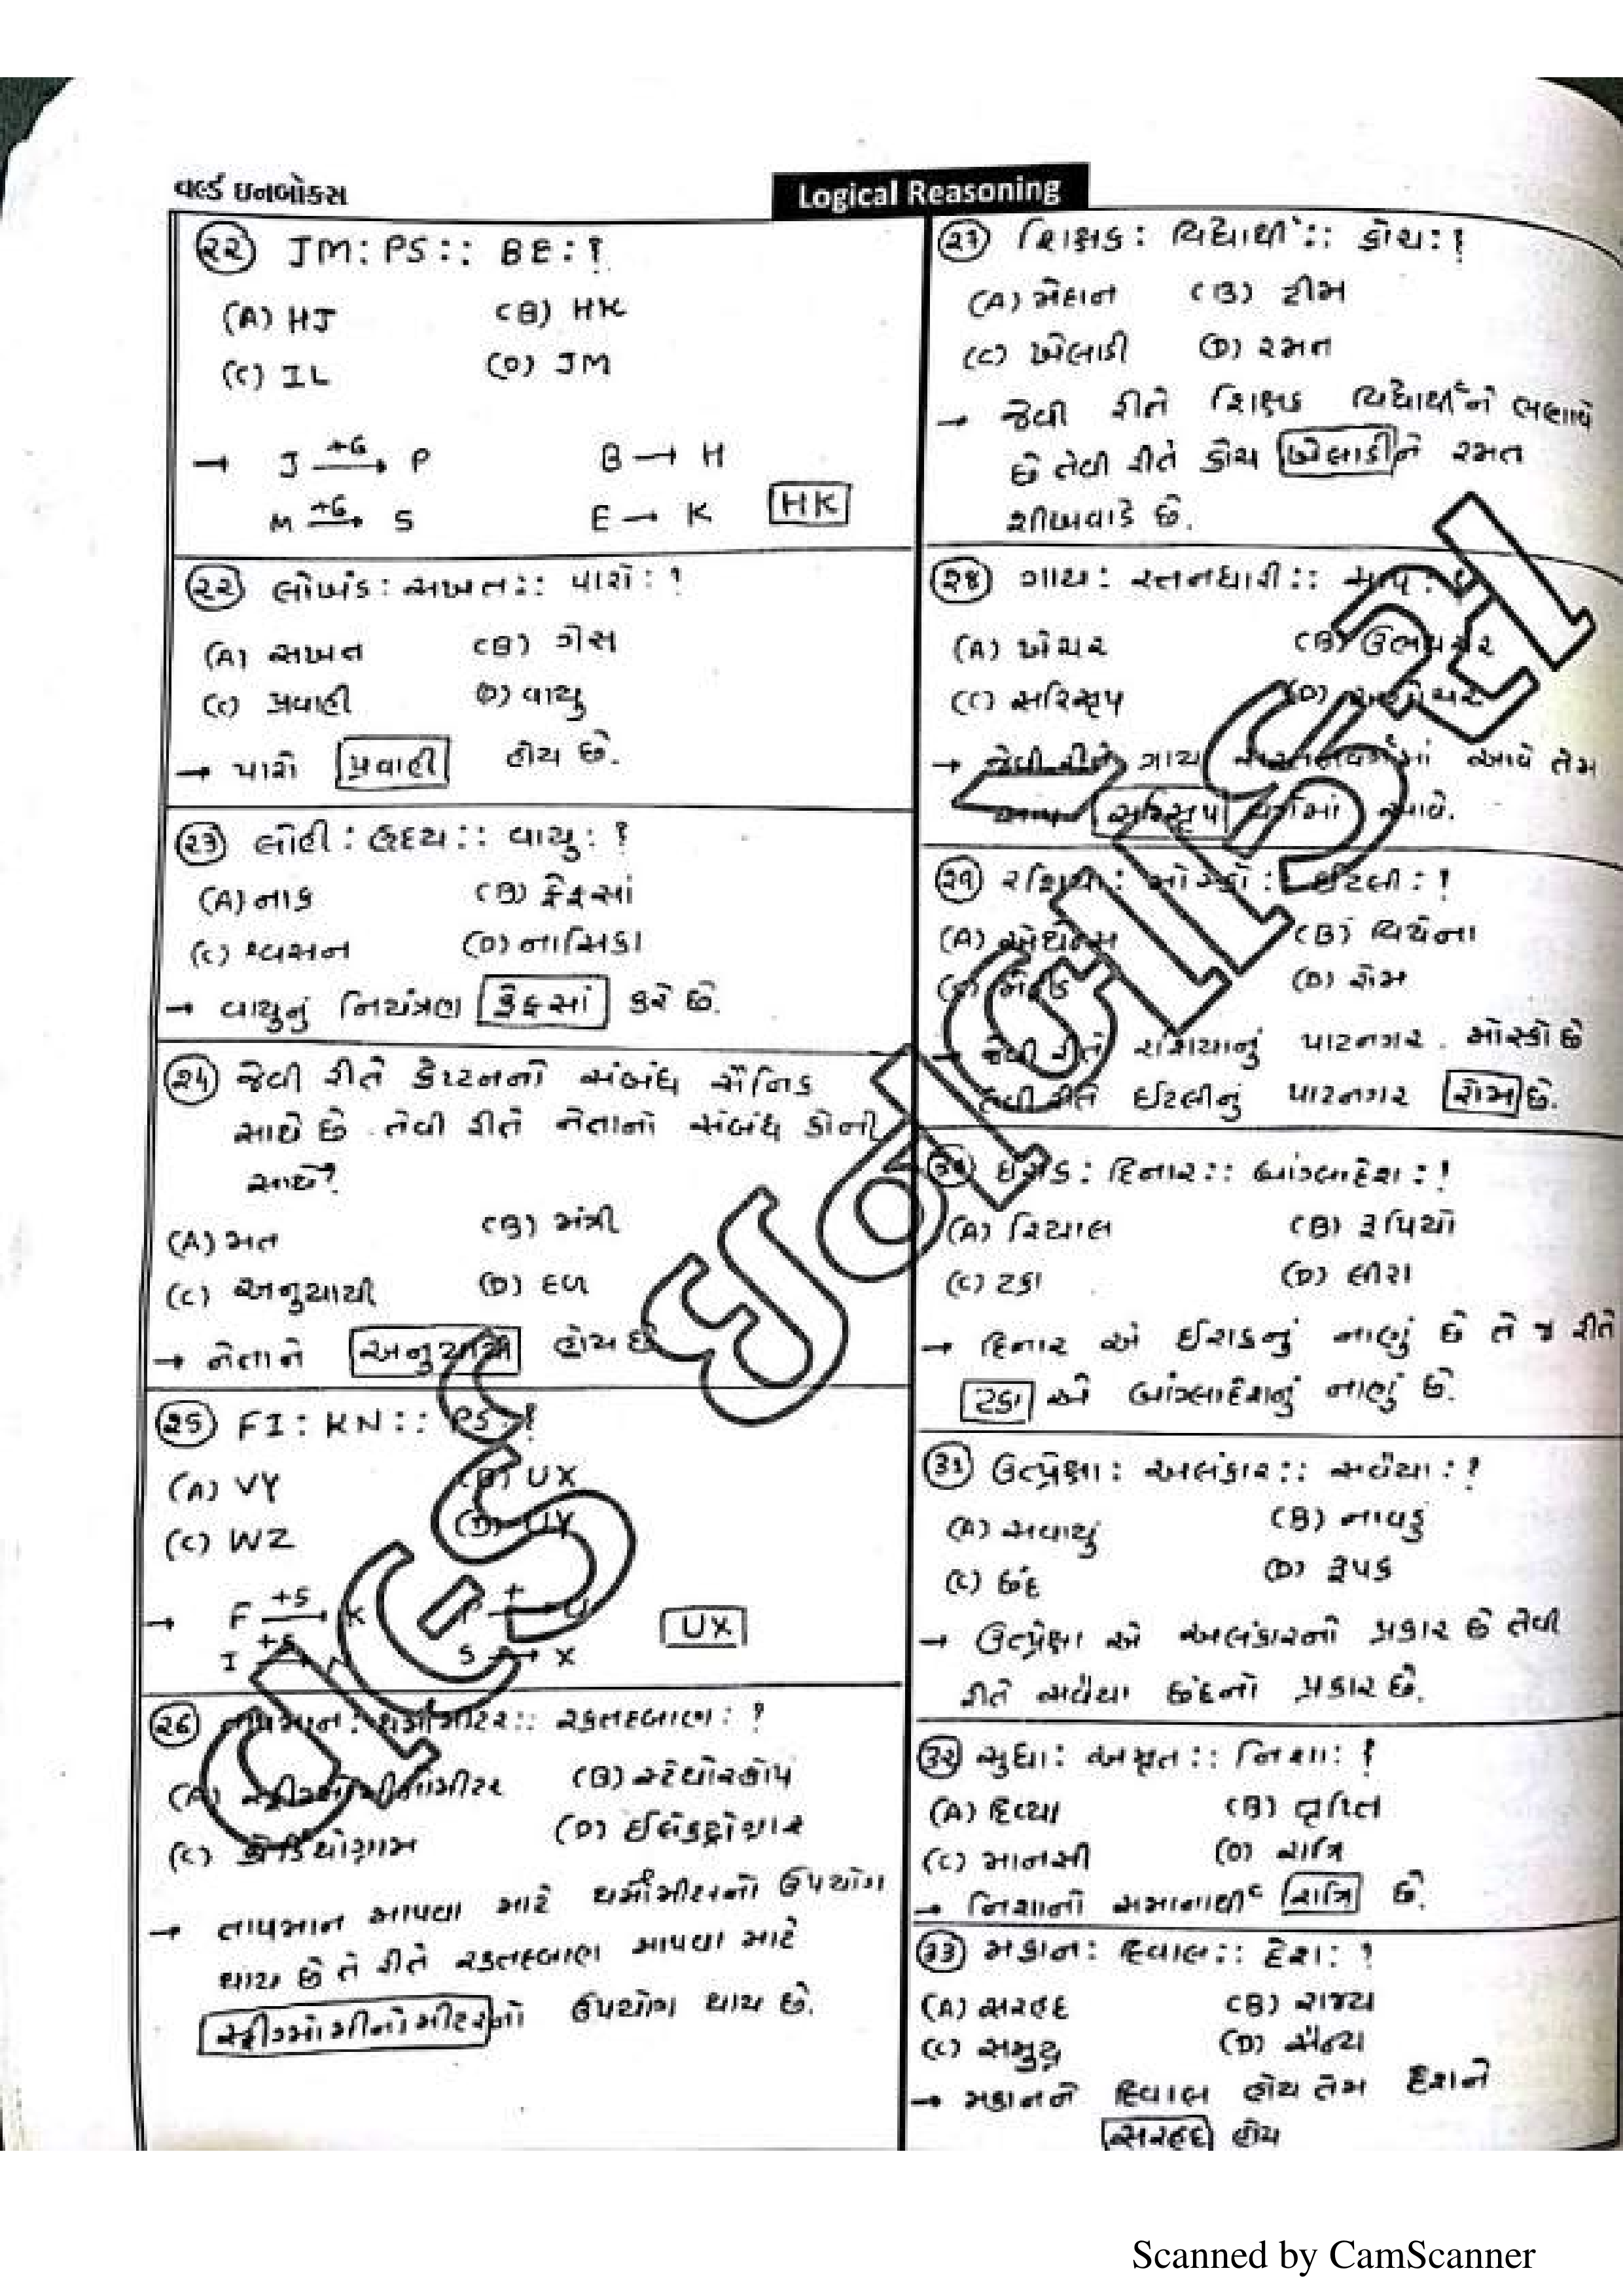 વર્લ્ડ ઇનબોક્સ
Logical Reasoning
૨૨ JM : PS :: BE : ?
(A) HJ (B) HK
(C) IL (D) JM
→ J +6→ P B → H
M +6→ S E → K HK
૨૨ લોખંડ : સખત :: પારો : ?
(A) સખત (B) ગેસ
(C) પ્રવાહી (D) વાયુ
→ પારો પ્રવાહી હોય છે.
૨૩ લોહી : હ્રદય :: વાયુ : ?
(A) નાક (B) ફેફસાં
(C) શ્વસન (D) નાસિકા
→ વાયુનું નિયંત્રણ ફેફસાં કરે છે.
૨૪ જેવી રીતે કેપ્ટનનો સંબંધ સૈનિક
સાથે છે તેવી રીતે નેતાનો સંબંધ કોની
સાથે?
(A) મત (B) મંત્રી
(C) અનુયાયી (D) દળ
→ નેતાને અનુયાયી હોય છે
૨૫ FI : KN :: PS : ?
(A) VY (B) UX
(C) WZ (D) UY
→ F +5→ K P + U
I +5 S → X UX
૨૬ તાપમાન : થર્મોમીટર :: રક્તદબાણ : ?
(A) સ્ફીગ્મોમીનોમીટર (B) સ્ટેથોસ્કોપ
(C) કોર્ડિયોગ્રામ (D) ઈલેક્ટ્રોથાર
→ તાપમાન માપવા માટે થર્મોમીટરનો ઉપયોગ
થાય છે તે રીતે રક્તદબાણ માપવા માટે
સ્ફીગ્મોમીનોમીટરનો ઉપયોગ થાય છે.
૨૭ શિક્ષક : વિદ્યાર્થી :: કોચ : ?
(A) મેદાન (B) ટીમ
(C) ખેલાડી (D) રમત
→ જેવી રીતે શિક્ષક વિદ્યાર્થીને ભણાવે
છે તેવી રીતે કોચ ખેલાડીને રમત
શીખવાડે છે.
૨૮ ગાય : સ્તનધારી :: સાપ : ?
(A) ખેચર (B) ઉભયચર
(C) સરિસૃપ (D)
→ જેવી રીતે ગાય આવે તેમ
સાપ સરિસૃપ વર્ગમાં આવે.
૨૯ રશિયા : મોસ્કો :: ઈટલી : ?
(A) એથેન્સ (B) વિયેના
(C) (D) રોમ
→ જેવી રીતે રશિયાનું પાટનગર મોસ્કો છે
તેવી રીતે ઈટલીનું પાટનગર રોમ છે.
૩૦ ઈરાક : દિનાર :: બાંગ્લાદેશ : ?
(A) રિયાલ (B) રૂપિયો
(C) ટકા (D) લીરા
→ દિનાર એ ઈરાકનું નાણું છે તે જ રીતે
ટકા એ બાંગ્લાદેશનું નાણું છે.
૩૧ ઉત્પ્રેક્ષા : અલંકાર :: સવૈયા : ?
(A) સવાયું (B) નાવડું
(C) છંદ (D) રૂપક
→ ઉત્પ્રેક્ષા એ અલંકારનો પ્રકાર છે તેવી
રીતે સવૈયા છંદનો પ્રકાર છે.
૩૨ સુધા : અમૃત :: નિશા : ?
(A) દિવ્યા (B) તૃપ્તિ
(C) માનસી (D) રાત્રિ
→ નિશાનો સમાનાર્થી રાત્રિ છે.
૩૩ મકાન : દિવાલ :: દેશ : ?
(A) સરહદ (B) રાજ્ય
(C) સમુદ્ર (D) સૈન્ય
→ મકાનને દિવાલ હોય તેમ દેશને
સરહદ હોય
Scanned by CamScanner